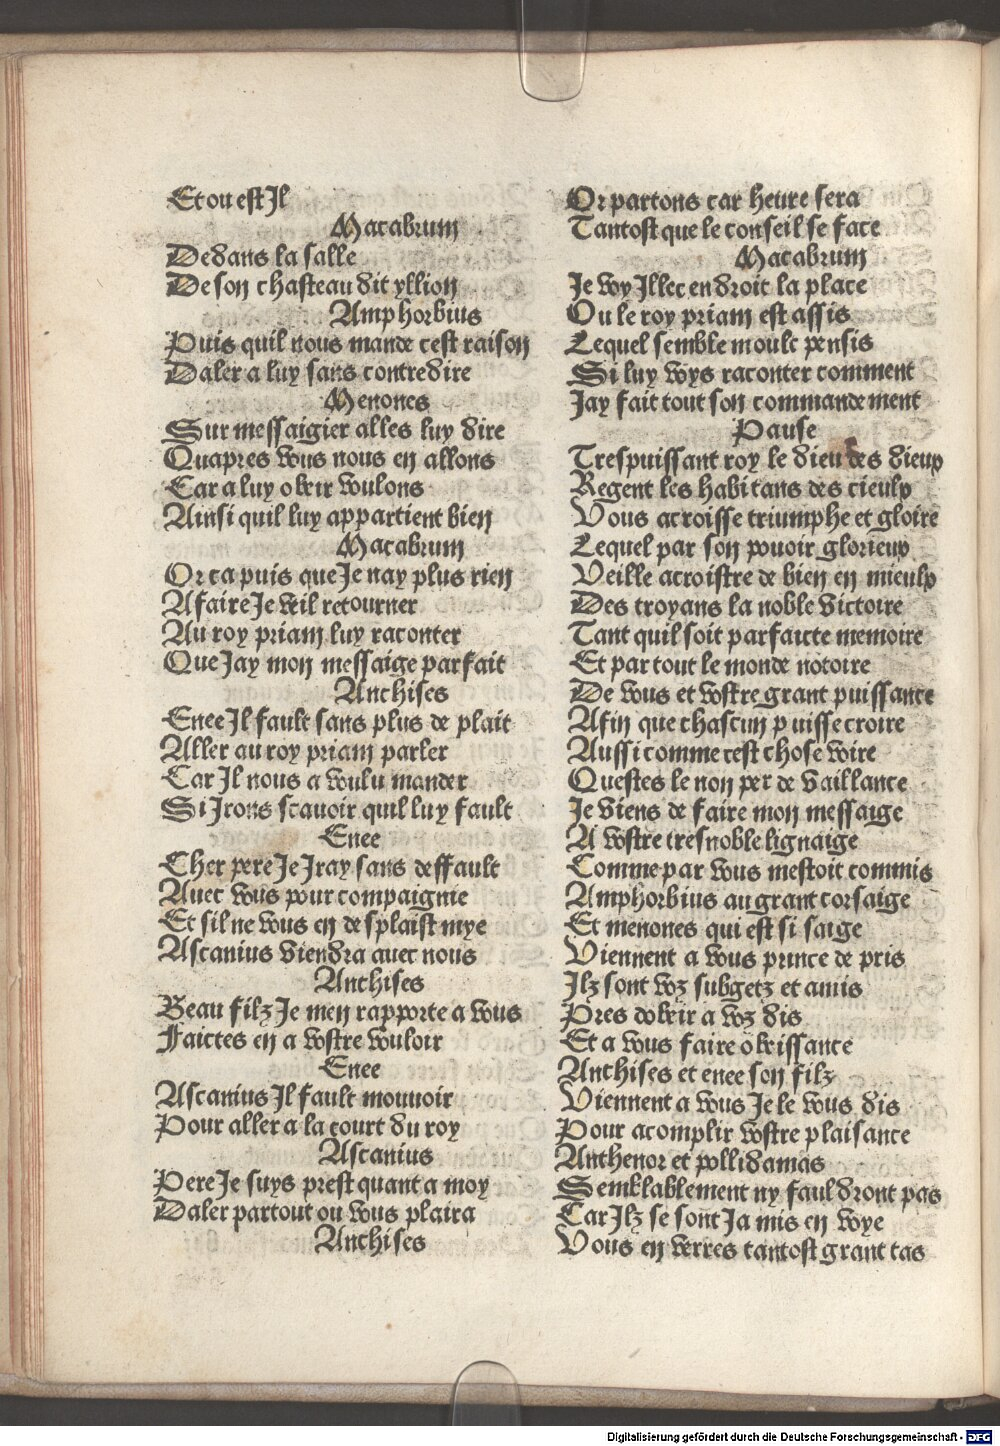 Et ou est Jl
Macabrum
Dedans la salle
De son chasteau dit yllion
Amphorbius
Puis quil nous mande cest raison
Daler a luy sans contredire
Menones
Sur messaigier alles luy dire
Quapres vous nous en allons
Car a luy obeir voulons
Ainsi quil luy appartient bien
Macabrum
Or ca puis que Je nay plus rien
A faire Je veil retourner
Au roy priam luy raconter
Que Jay mon messaige parfait
Anchises
Enee Jl fault sans plus de plait
Aller au roy priam parler
Car Jl nous a voulu mander
Si Jrons scauoir quil luy fault
Enee
Cher pere Je Jray sans deffault
Auec vous pour compaignie
Et sil ne vous en desplaist mye
Ascanius viendra auec nous
Anchises
Beau filz Je men rapporte a vous
Faictes en a vostre vouloir
Enee
Ascanius Jl fault mouuoir
Pour aller a la court du roy
Ascanius
Pere Je suys prest quant a moy
Daler partout ou vous plaira
Anchises
Or partons car heure sera
Tantost que le conseil se face
Macabrum
Je voy Jllec endroit la place
Ou le roy priam est assis
Lequel semble moult pensis
Si luy voys raconter comment
Jay fait tout son commandement
Pause
Trespuissant roy le dieu des dieux
Regent les habitans des cieulx
Vous acroisse triumphe et gloire
Lequel par son pouoir glorieux
Veille acroistre de bien en mieulx
Des troyans la noble victoire
Tant quil soit parfaicte memoire
Et par tout le monde notoire
De vous et vostre grant puissance
Afin que chascun puisse croire
Aussi comme cest chose voire
Questes le non per de vaillance
Je viens de faire mon messaige
A vostre tresnoble lignaige
Comme par vous mestoit commis
Amphorbius au grant corsaige
Et menones qui est si saige
Viennent a vous prince de pris
Jlz sont voz subgetz et amis
Pres dobeir a voz dis
Et a vous faire obeissance
Anchises et enee son filz
Viennent a vous Je le vous dis
Pour acomplir vostre plaisance
Anthenor et pollidamas
Semblablement ny fauldront pas
Car Jlz se sont Ja mis en voye
Vous en verres tantost grant tas
Digitalisierung gefördert durch die Deutsche Forschungsgemeinschaft - DFG